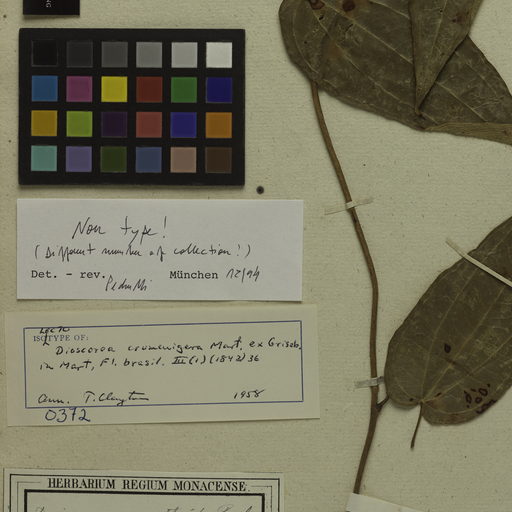 Non type!
(Different number of collection!)
Det. - rev. Pedralli München 12/94
LECTO
ISOTYPE OF:
Dioscorea crumenigera Mart. ex Griseb.
in Mart, Fl. brasil. III(1)(1842) 36
Ann. T. Clayton 1958
0372
HERBARIUM REGIUM MONACENSE.